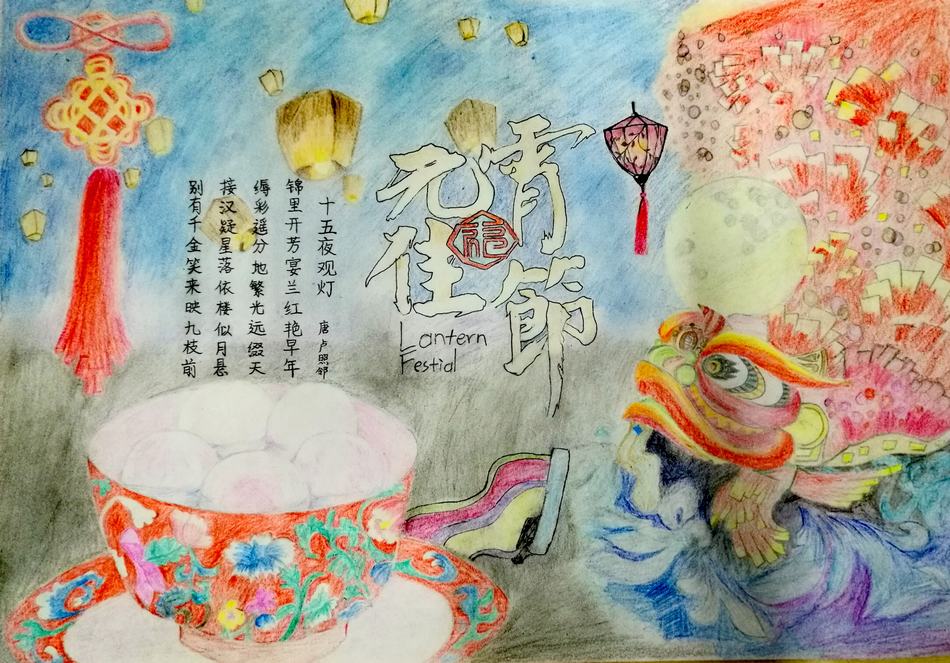 元宵
佳節
福
Lantern
Festial
十五夜观灯 唐 卢照邻
锦里开芳宴兰红艳早年
缛彩遥分地繁光远缀天
接汉疑星落依楼似月悬
别有千金笑来映九枝前